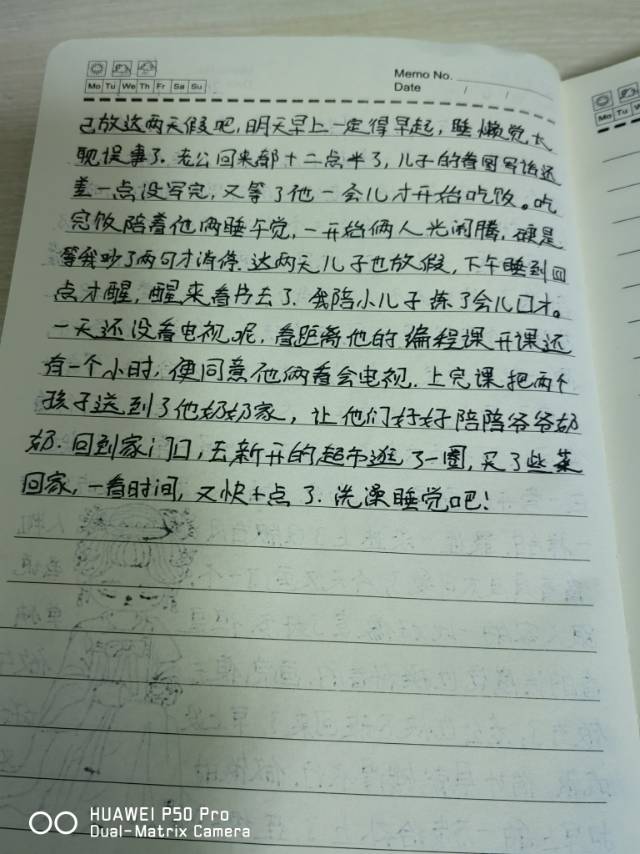 Memo No.
Mo Tu We Th Fr Sa Su
Date / /
己放这两天假吧,明天早上一定得早起,睡懒觉太
耽误事了.老公回来都十二点半了,儿子的看图写话还
差一点没写完,又等了他一会儿才开始吃饭。吃
完饭陪着他俩睡午觉,一开始俩人光闹腾,硬是
等我吵了两句才消停.这两天儿子也放假,下午睡到四
点才醒,醒来看书去了.我陪小儿子练了会儿口才。
一天还没看电视呢,看距离他的编程课开课还
有一个小时,便同意他俩看会电视.上完课把两个
孩子送到了他奶奶家,让他们好好陪陪爷爷奶
奶.回到家门口,去新开的超市逛了一圈,买了些菜
回家,一看时间,又快十点了.洗澡睡觉吧!
HUAWEI P50 Pro
Dual-Matrix Camera